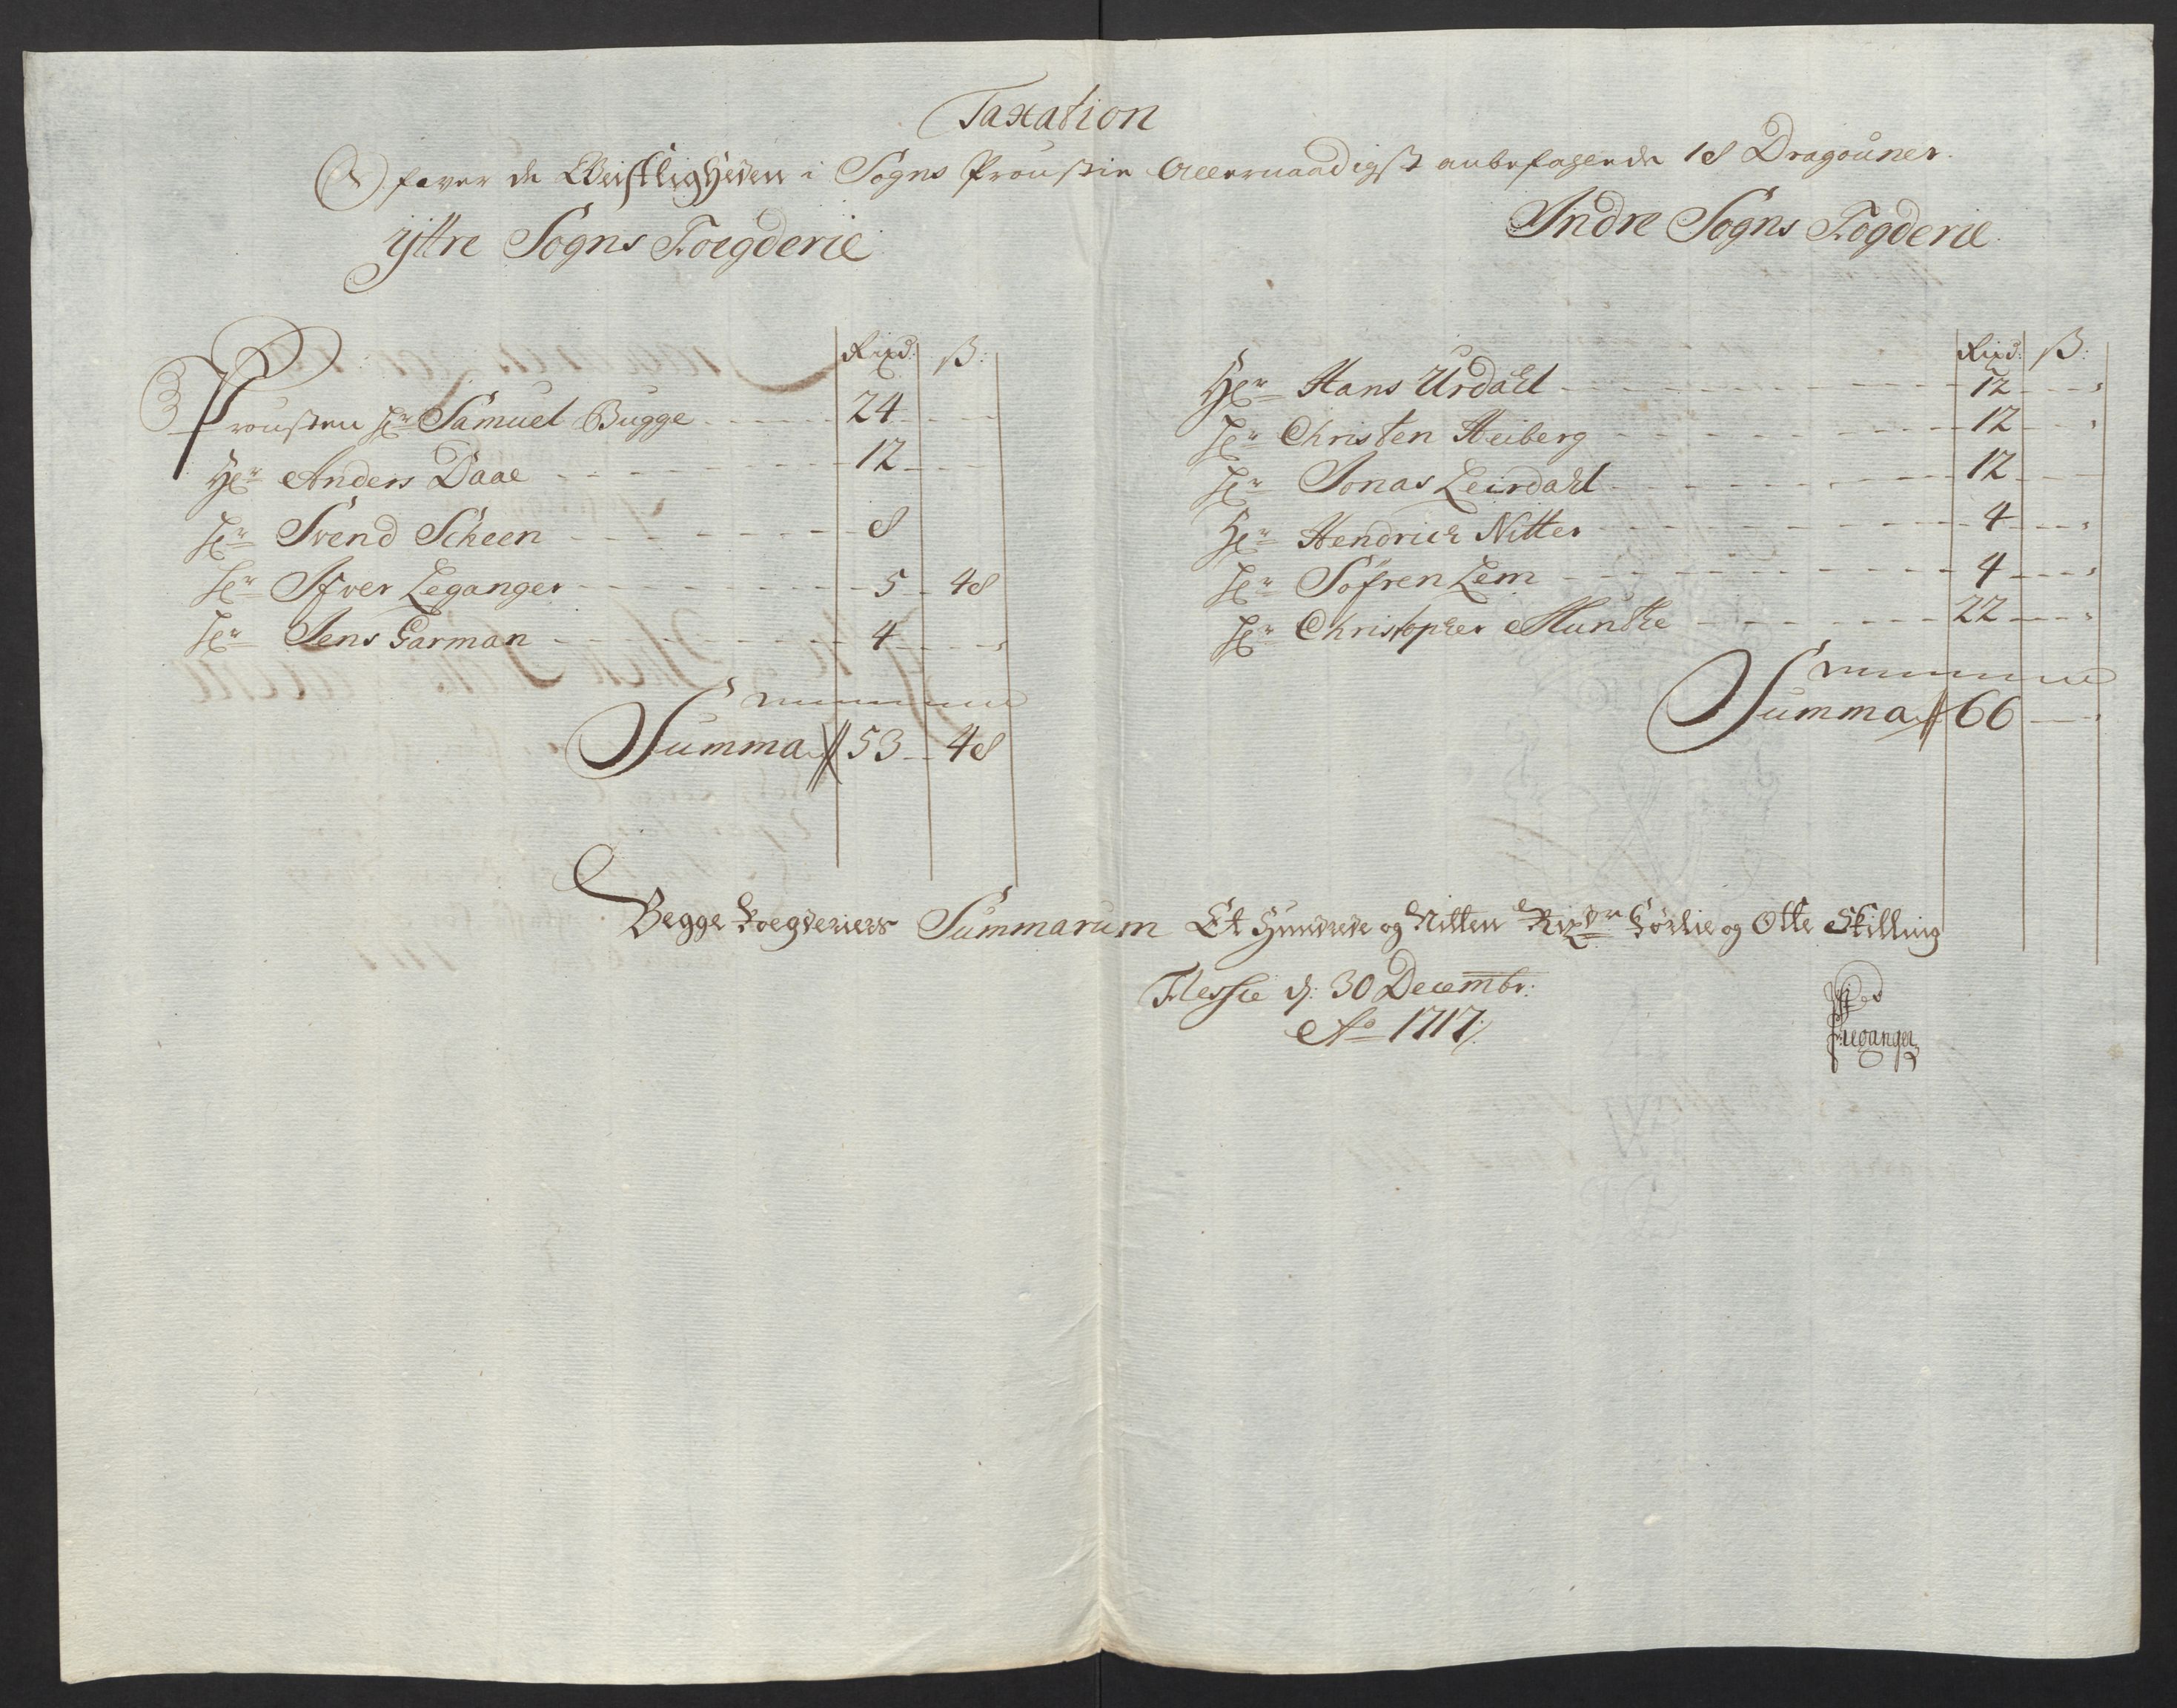 Taxation
Ofwer de Geistligheden i Sogns Proustie Allernaadigst anbefahlende 18 Dragouner.
Yttre Sogns Foegderie
Rixd: ß:
Prousten Hr Samuel Bugge 24
Hr Anders Daae 12
Hr Svend Scheen 8
Hr Ifver Leganger 5 48
Hr Jens Garman 4
Summa 53 48
Indre Sogns Fogderie
Rixd: ß:
Hr Hans Urdahl 12
Hr Christen Heiberg 12
Hr Jonas Leirdahl 12
Hr Hendrich Nitter 4
Hr Söfren Lem 4
Hr Christopher Munthe 22
Summa 66
Begge Foegderiers Summarum Et Hundrede og Nitten Rixdr Förtie og Otte Skilling
d: 30 Decembr:
Ao 1717
Leganger